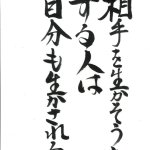 相手を生かそうと
する人は
自分も生かされる